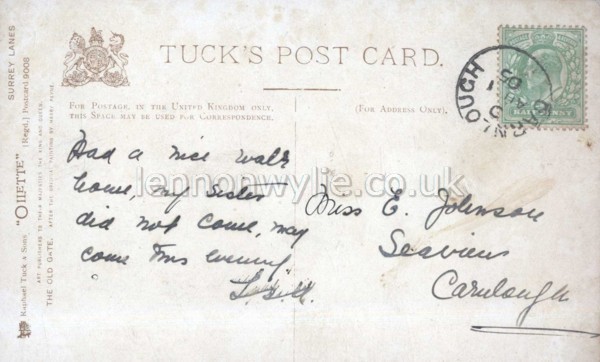 TUCK'S POST CARD.
FOR POSTAGE, IN THE UNITED KINGDOM ONLY,
THIS SPACE MAY BE USED FOR CORRESPONDENCE.
(FOR ADDRESS ONLY).
Had a nice walk
home, my sister
did not come, may
come this evening
Miss E. Johnson
Seaview
Carnlough
lennonwylie.co.uk
HALFPENNY
Raphael Tuck & Sons "OILETTE" [Regd.] Postcard 9008
SURREY LANES
ART PUBLISHERS TO THEIR MAJESTIES THE KING AND QUEEN.
THE OLD GATE.